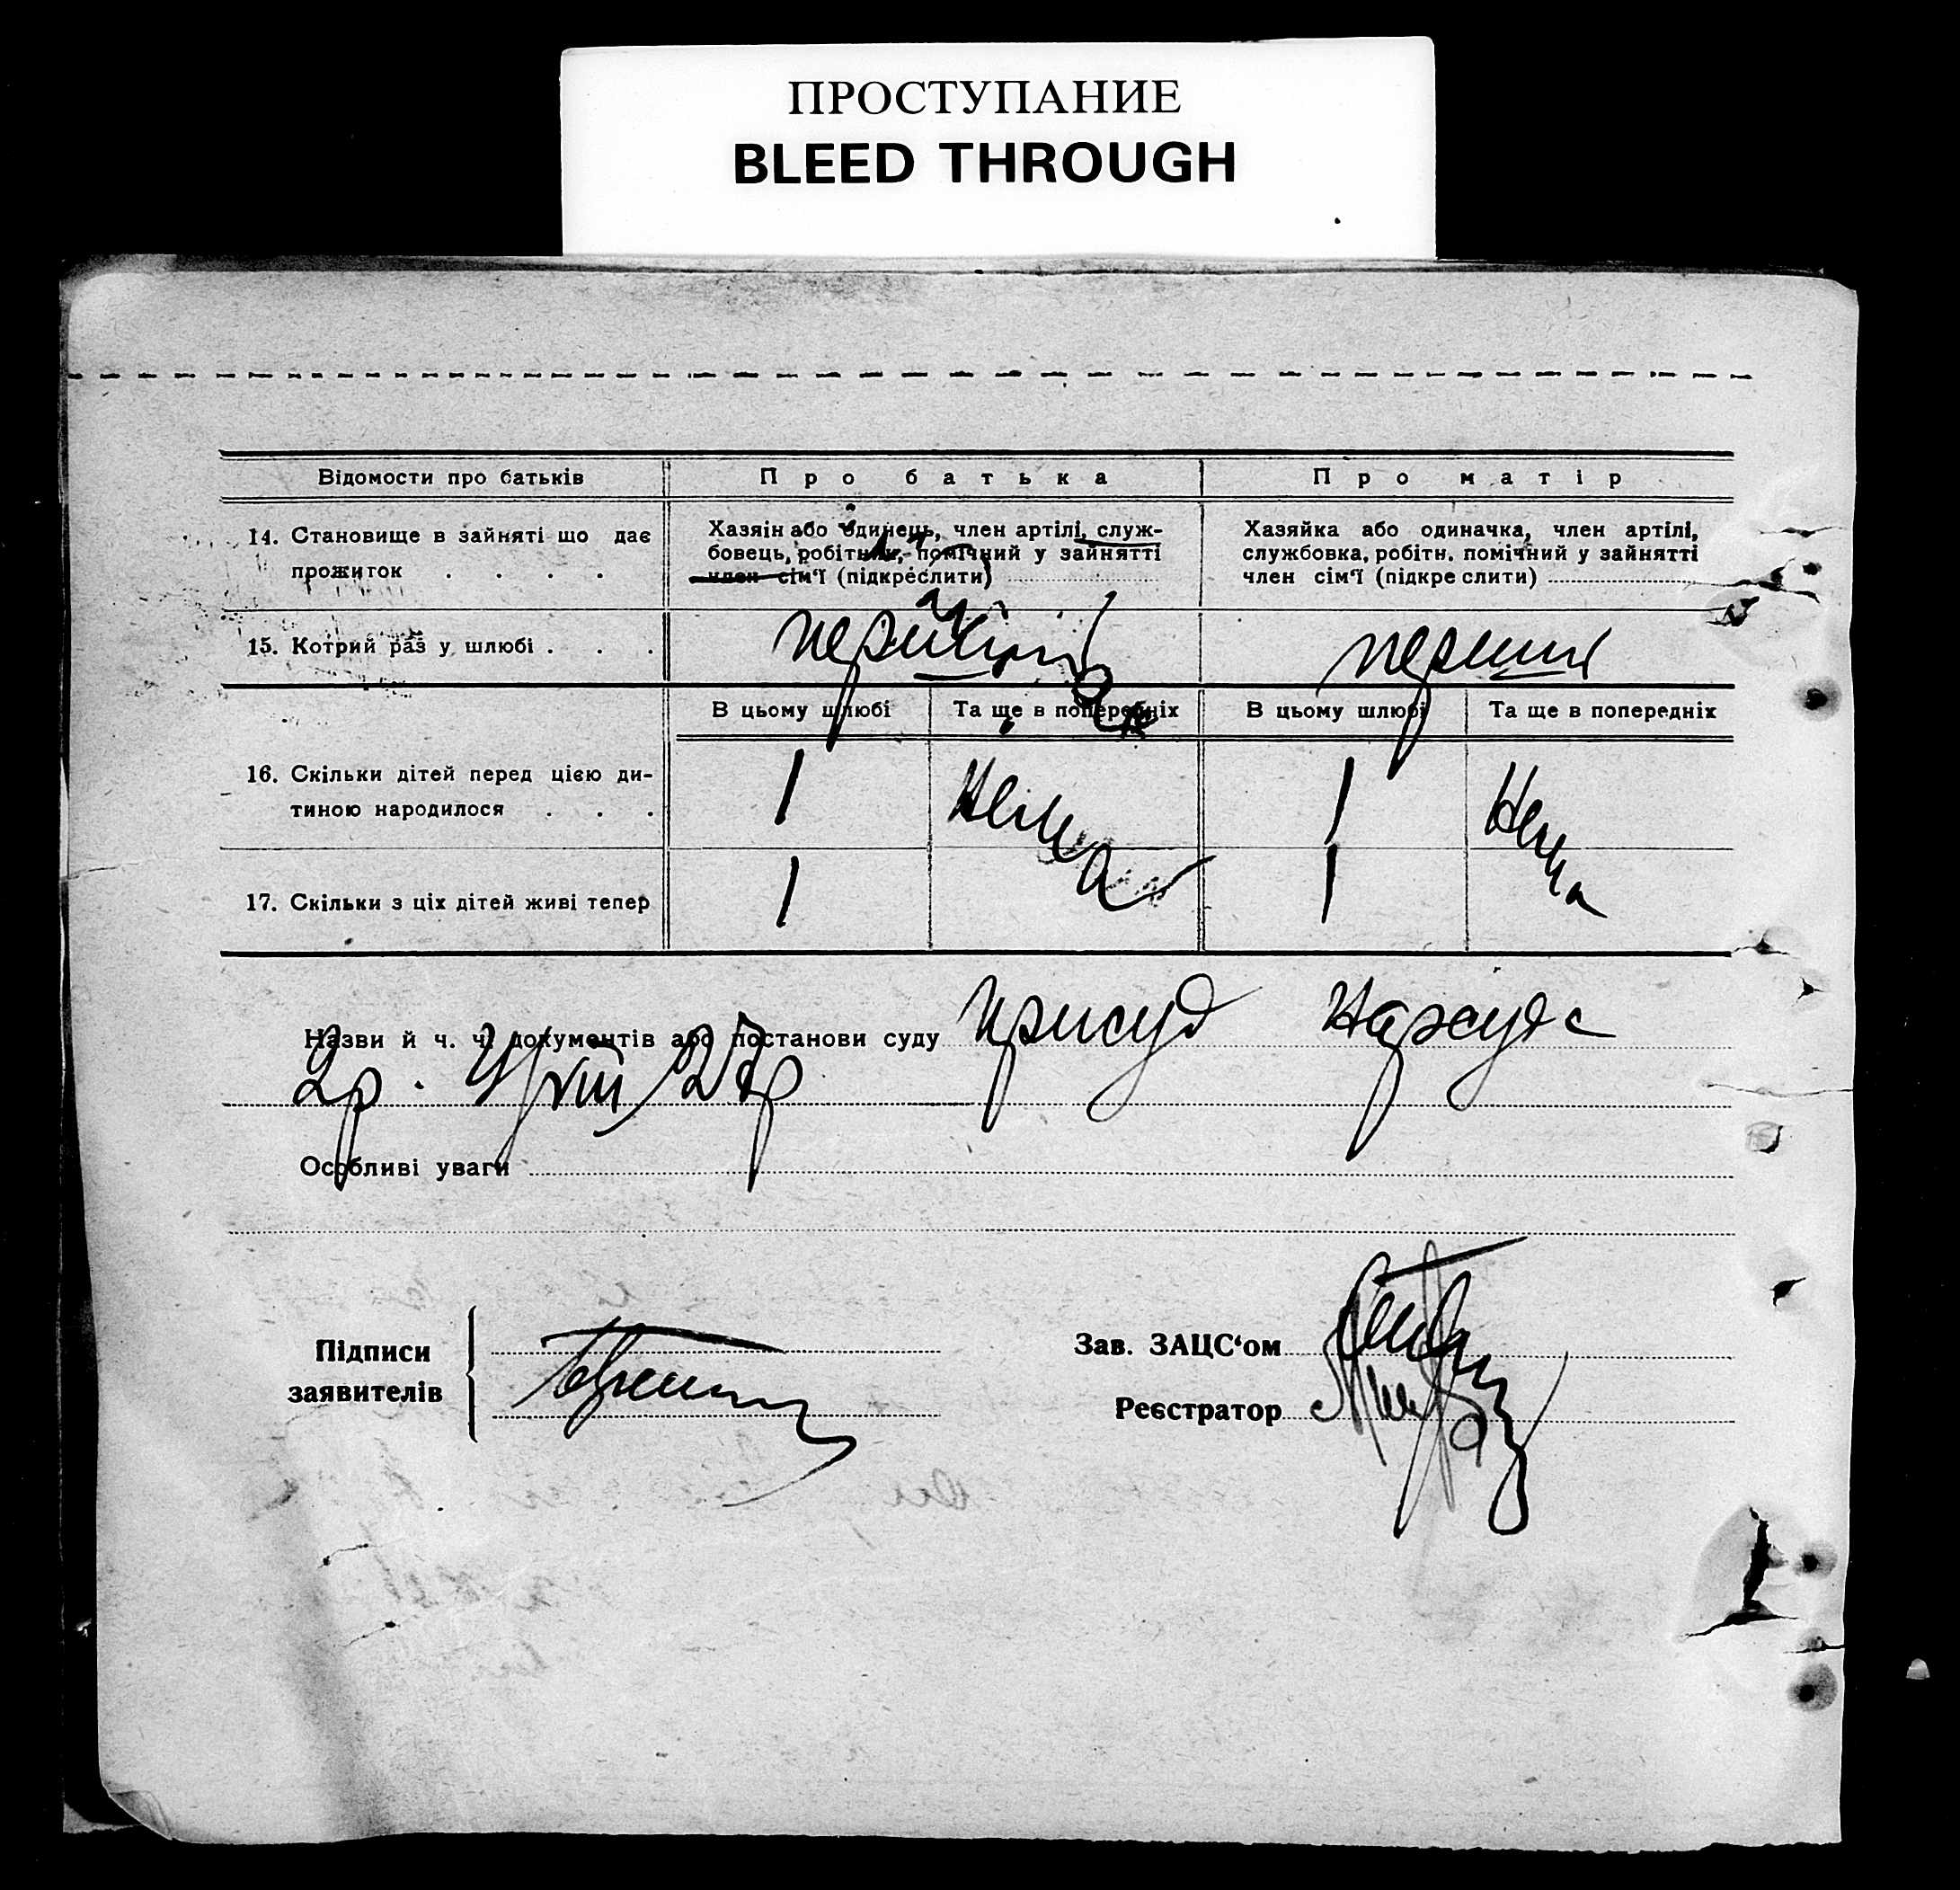 ПРОСТУПАНИЕ
BLEED THROUGH
Відомости про батьків
Про батька
Про матір
14. Становище в зайняті що дає
прожиток . . . .
Хазяін або одинець, член артілі, служ-
бовець, робітник, помічний у зайнятті
член сім'ї (підкреслити)
Хазяйка або одиначка, член артілі,
службовка, робітн. помічний у зайнятті
член сім'ї (підкреслити)
15. Котрий раз у шлюбі . . .
перший
В цьому шлюбі
Та ще в попередніх
В цьому шлюбі
Та ще в попередніх
16. Скільки дітей перед цією ди-
тиною народилося . . .
1
Нема
1
Нема
17. Скільки з ціх дітей живі тепер
1
1
Назви й ч. ч. документів або постанови суду Присуд Нарсуда
2р. 4/VIII 27р
Особливі уваги
Підписи
заявителів
Зав. ЗАЦС'ом
Реєстратор